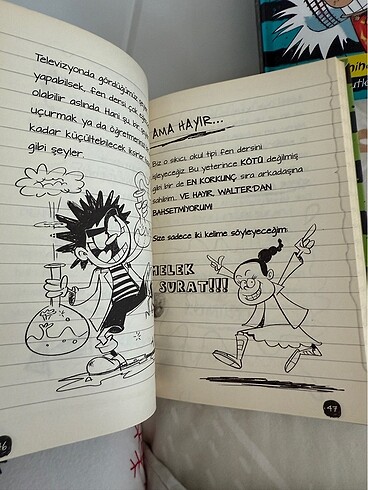 Televizyonda gördüğümüz şeyleri
yapabilsek, fen dersi çok
olabilir aslında. Hani şu bir şeyleri
uçurmak ya da öğretmenini
kadar küçültebilecek iksirler
gibi şeyler.
46
AMA HAYIR...
Biz o sıkıcı okul tipi fen dersini
işleyeceğiz. Bu yeterince KÖTÜ değilmiş
gibi bir de EN KORKUNÇ sıra arkadaşına
sahibim. VE HAYIR, WALTER'DAN
BAHSETMİYORUM!
Size sadece iki kelime söyleyeceğim:
MELEK
SURAT!!!
47